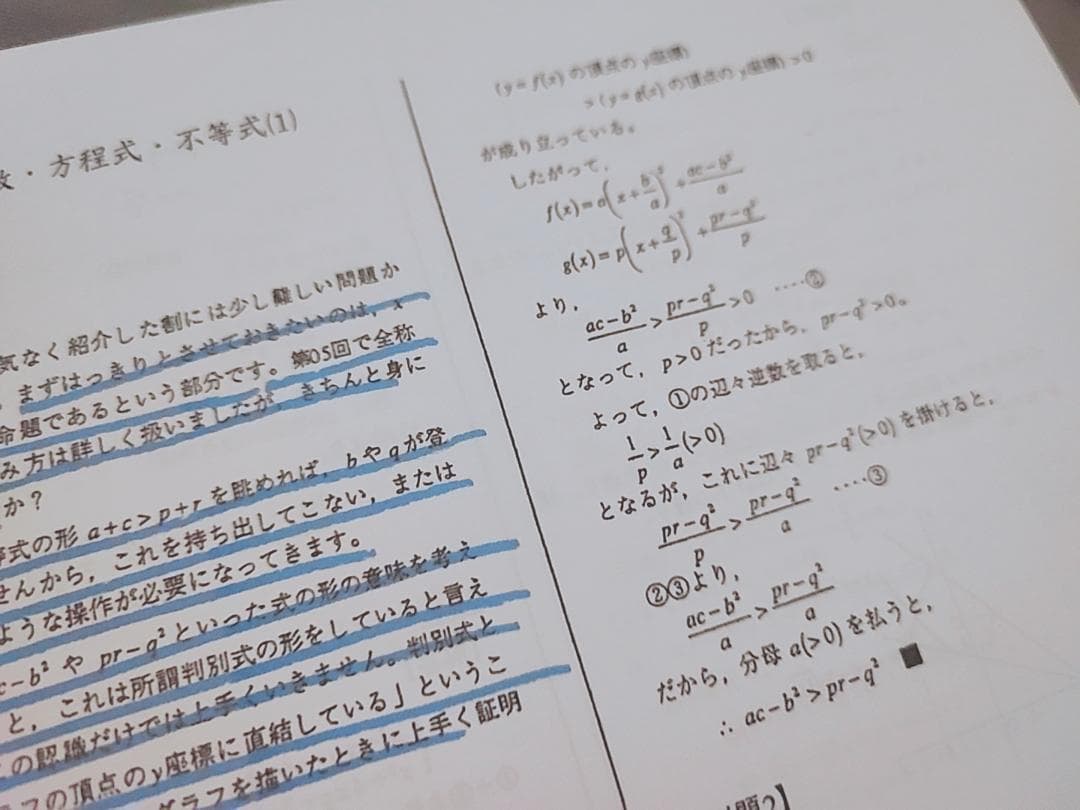 数・方程式・不等式(1)
気なく紹介した割には少し難しい問題か
まずはっきりとさせておきたいのは，x
命題であるという部分です。第05回で全称
み方は詳しく扱いましたが，きちんと身に
か？
等式の形 a+c>p+r を眺めれば，bやqが登
せんから，これを持ち出してこない，または
ような操作が必要になってきます。
c−b²や pr−q²といった式の形の意味を考え
と，これは所謂判別式の形をしていると言え
この認識だけでは上手くいきません。判別式と
フの頂点のy座標に直結している」というこ
グラフを描いたときに上手く証明
(y=f(x) の頂点の y座標)
>(y=g(x) の頂点の y座標)>0
が成り立っている。
したがって，
f(x)=a(x+b/a)²+(ac−b²)/a
g(x)=p(x+q/p)²+(pr−q²)/p
より，
(ac−b²)/a>(pr−q²)/p>0 ‥‥②
となって，p>0だったから，pr−q²>0。
よって，①の辺々逆数を取ると，
1/p>1/a(>0)
となるが，これに辺々 pr−q²(>0) を掛けると，
(pr−q²)/p>(pr−q²)/a ‥‥③
②③より，
(ac−b²)/a>(pr−q²)/a
だから，分母 a(>0) を払うと，
∴ ac−b²>pr−q² ■